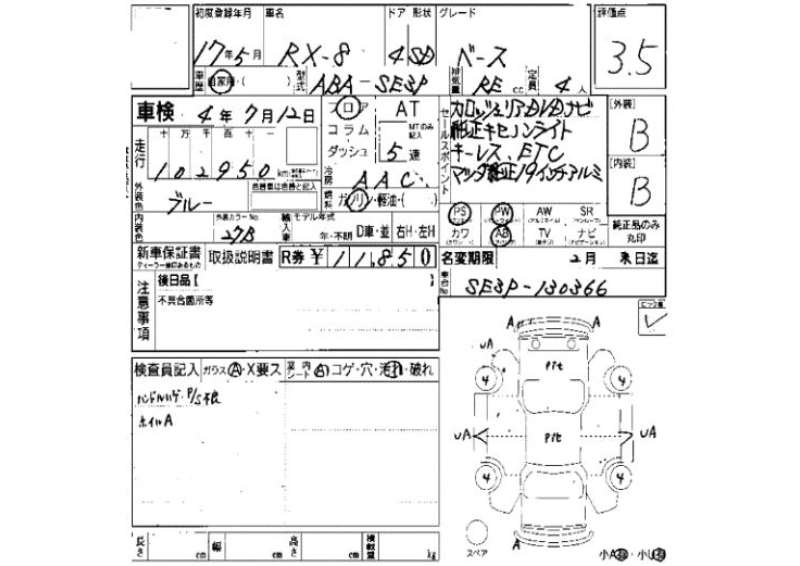 初度登録年月 車名 ドア 形状 グレード 評価点
17年5月 RX-8 4 SD ベース 3.5
車歴 自家用・( ) 型式 ABA-SE3P 排気量 RE cc 定員 4人
車検 4年7月12日 フロア AT セールスポイント カロッツェリアDVDナビ [外装]
コラム MTのみ記入 純正キセノンライト B
走行 十万千百十一 ダッシュ 5速 キーレス、ETC [内装]
102950 km 冷房 AAC マツダ純正19インチアルミ B
外装色 ブルー 色替車は色番と記入 燃料 ガソリン・軽油・( )
PS PW AW SR 純正品のみ丸印
内装色 外装カラーNo. 27B 輸入車 モデル年式 年・不明 D車・並 右H・左H カワ AB TV ナビ
新車保証書 取扱説明書 R券 ¥11,850 名変期限 2月 末日迄
ディーラー捺印あるもの
注意事項 後日品[ 車台No SE3P-130366
不具合箇所等
検査員記入 ガラスⒶ・X要ス 室内シート Ⓐコゲ・穴・汚れ・破れ
P/S不良
ホイルA
A A
UA
Pit
4 4
UA Pit UA
4 4
A
スペア
小A 小U
長さ cm 幅 cm 高さ cm 積載量 kg